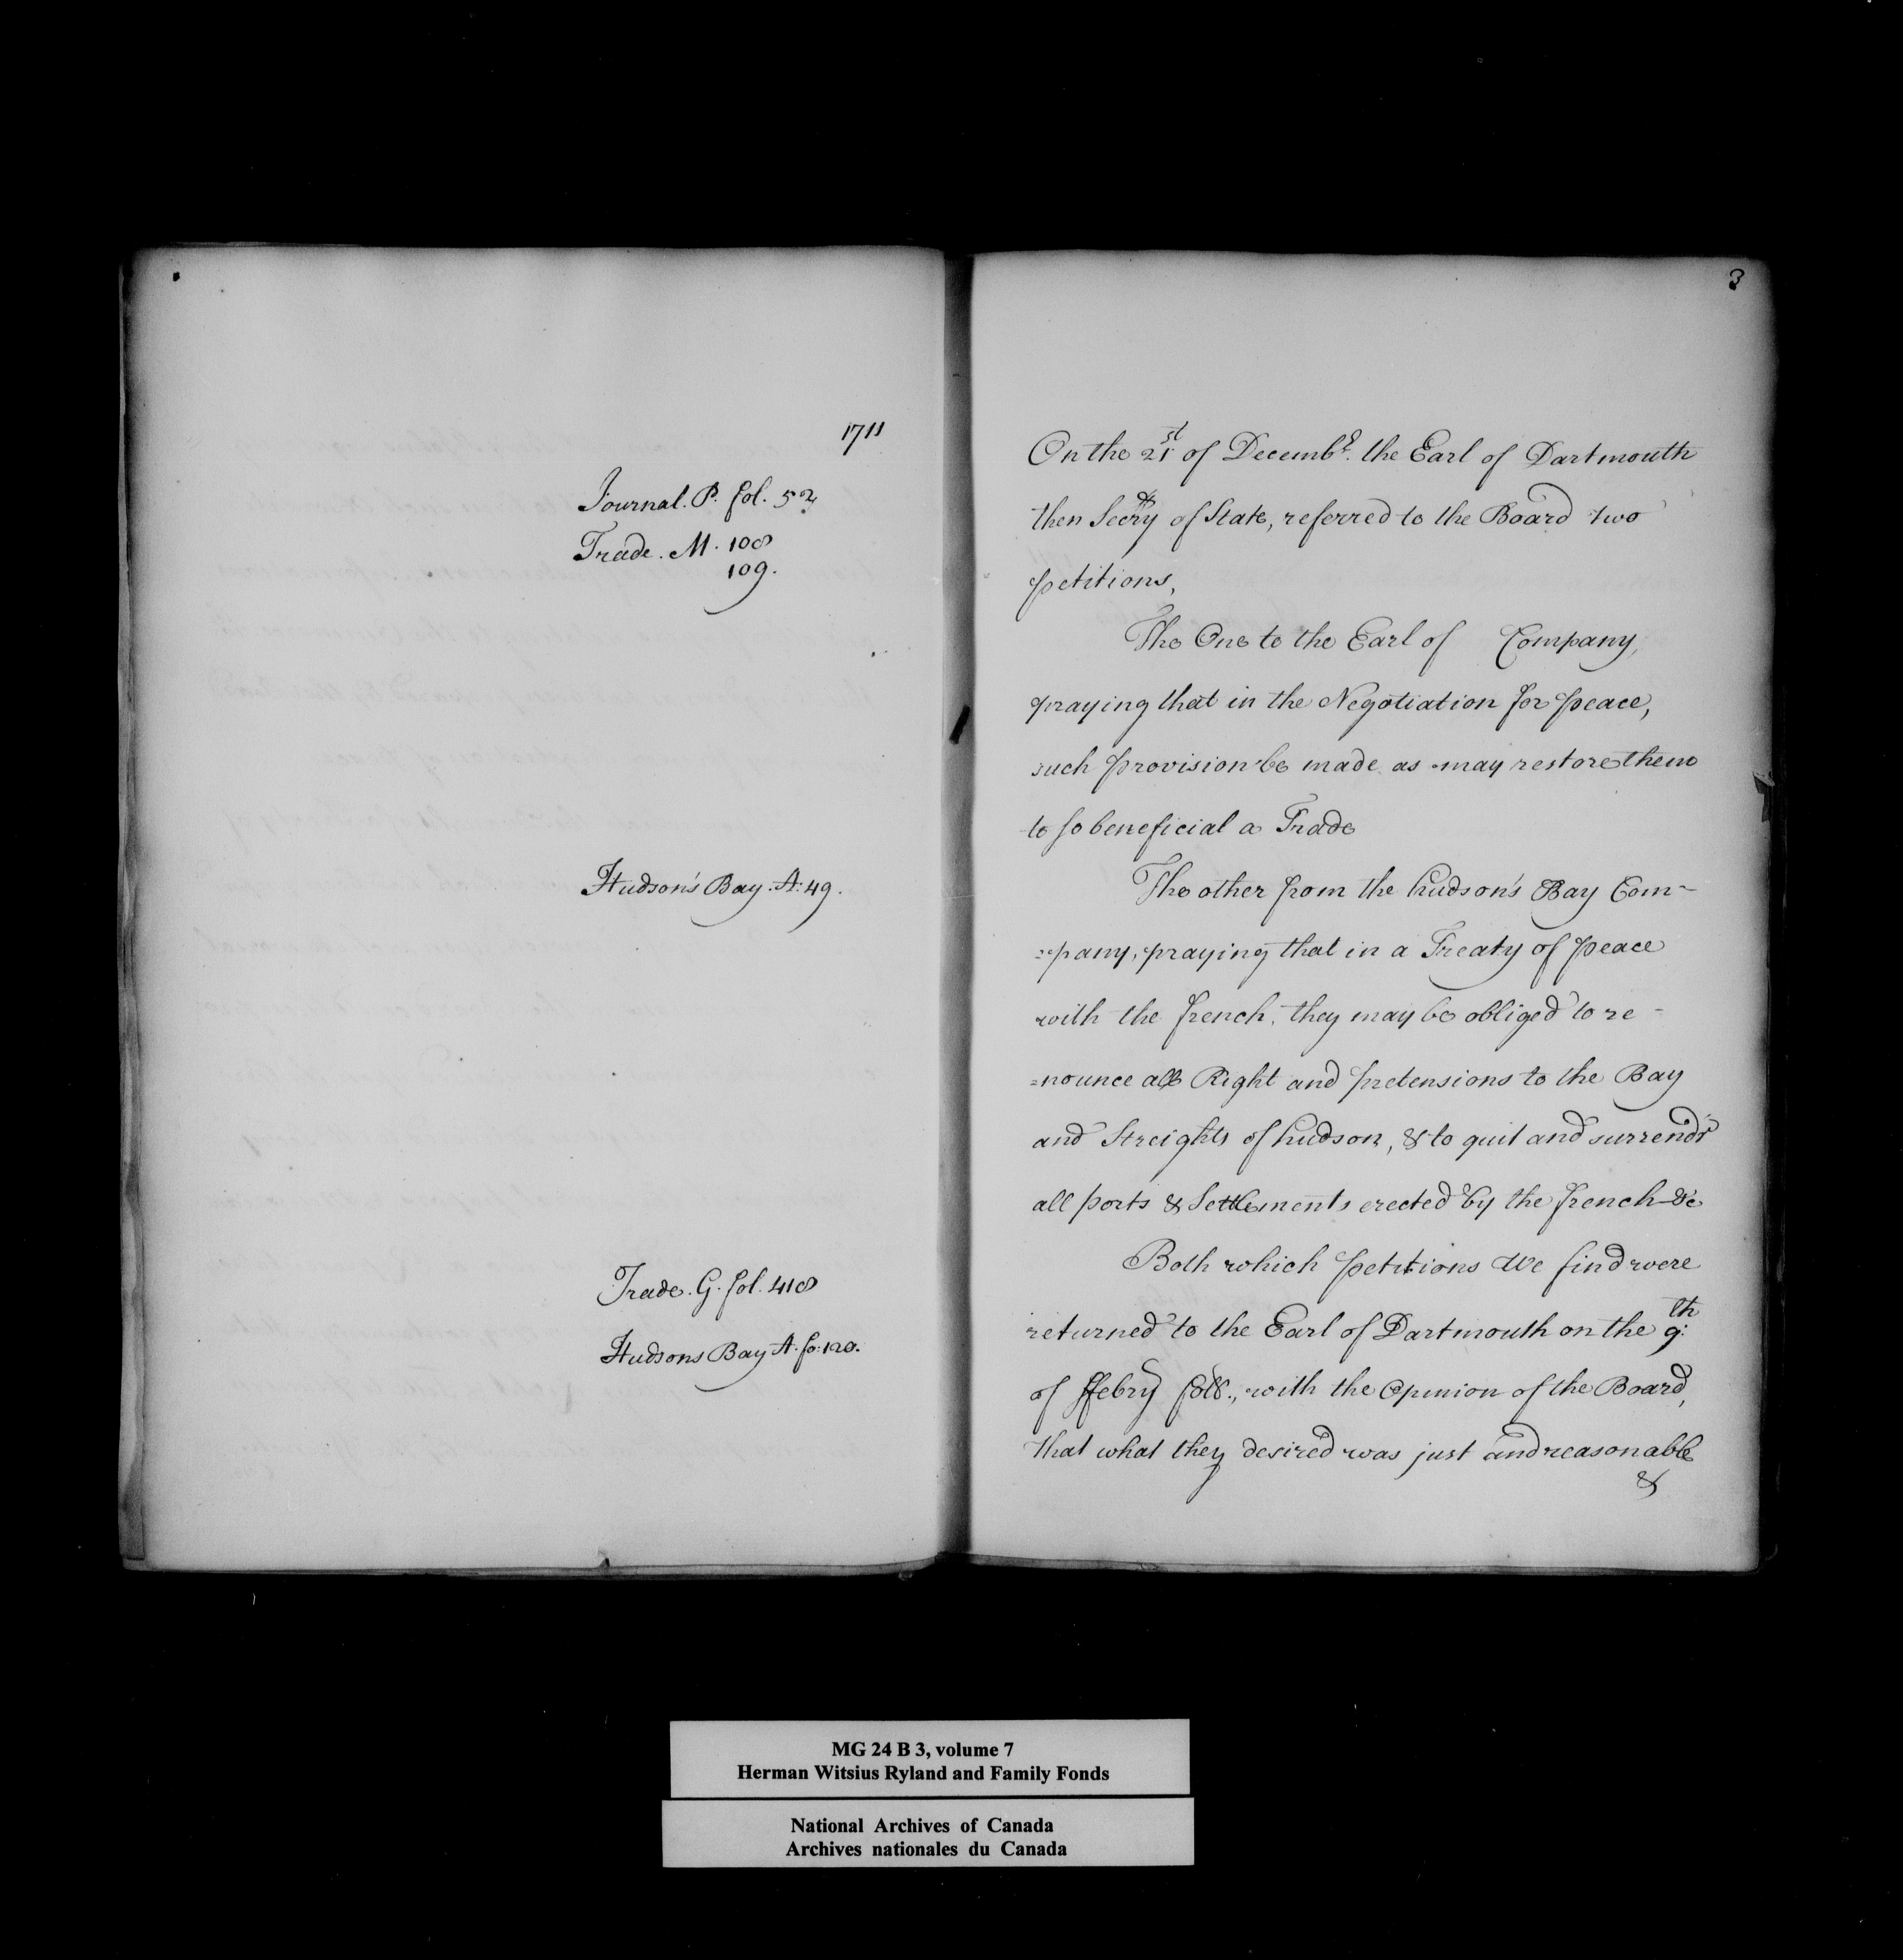 1711
Journal. P. fol. 52
Trade. M. 108
109.
Hudson's Bay. A: 49.
Trade. G. fol. 418
Hudsons Bay A. fo: 120.
3
On the 21st of Decembr. the Earl of Dartmouth
then Secry of State, referred to the Board two
petitions,
The One to the Earl of Company,
praying that in the Negotiation for peace,
such provision be made as may restore them
to so beneficial a Trade
The other from the hudson's Bay Com-
=pany, praying that in a Treaty of peace
with the french, they may be obliged to re-
=nounce all Right and pretensions to the Bay
and Streights of hudson, & to quit and surrendr
all ports & Settlements erected by the french &c
Both which petitions We find were
returned to the Earl of Dartmouth on the 9th:
of ffebry foll., with the Opinion of the Board,
that what they desired was just and reasonable
&
MG 24 B 3, volume 7
Herman Witsius Ryland and Family Fonds
National Archives of Canada
Archives nationales du Canada